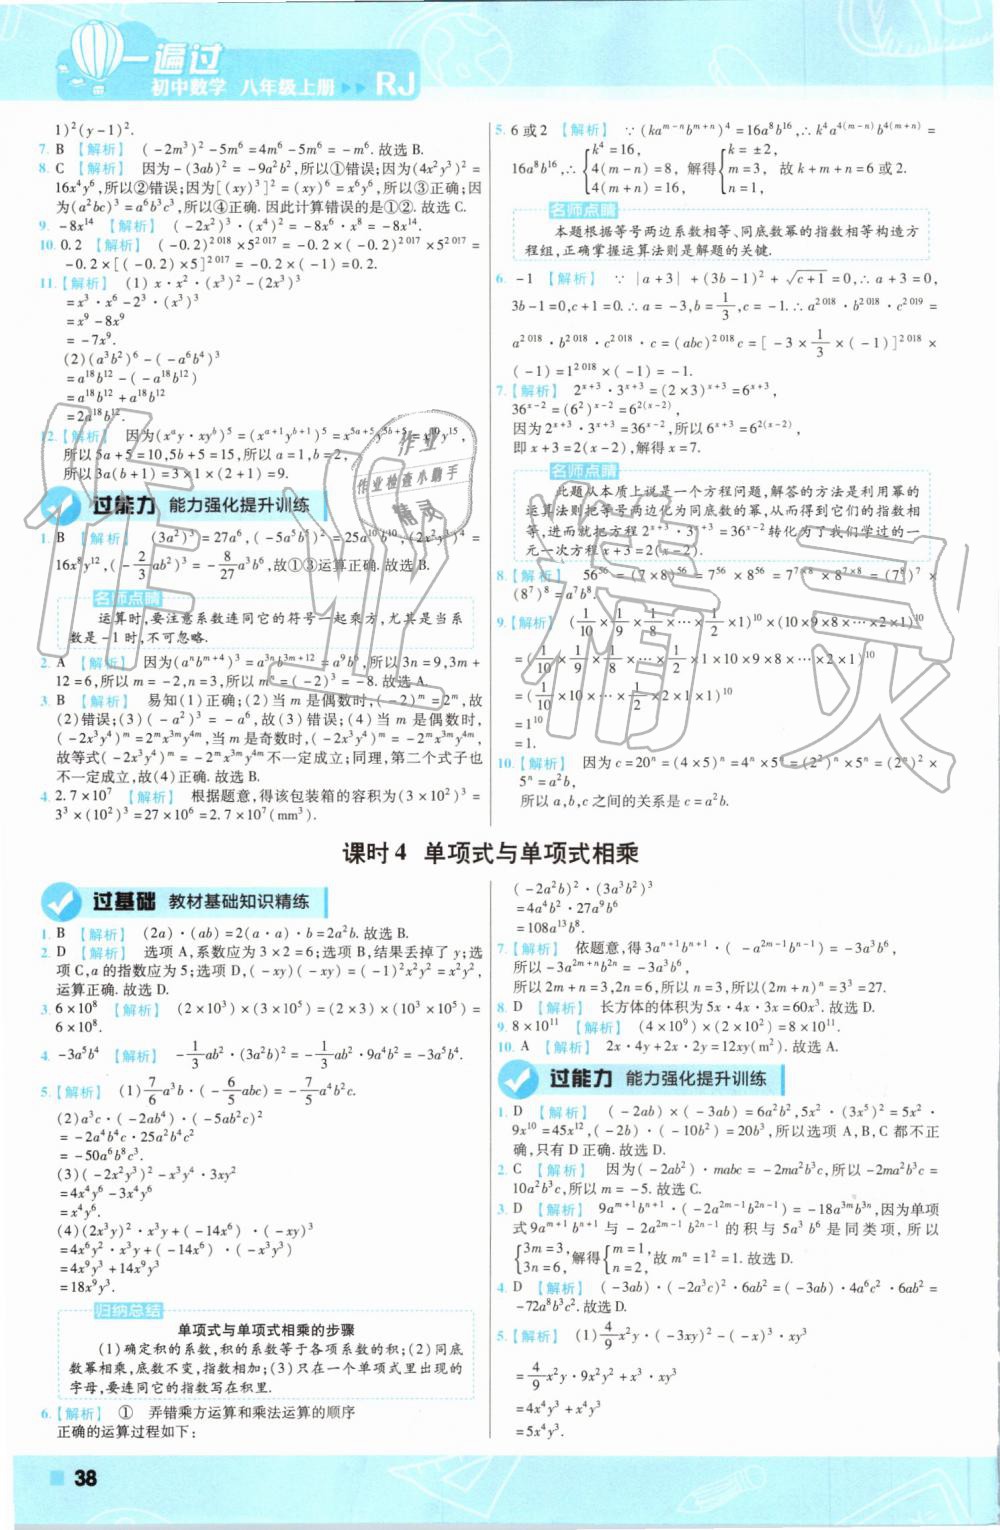 一遍过
初中数学 八年级上册 RJ
1)²(y-1)².
7. B 【解析】 (-2m³)²-5m⁶=4m⁶-5m⁶=-m⁶.故选B.
8. C 【解析】 因为-(3ab)²=-9a²b²,所以①错误;因为(4x²y³)²=
16x⁴y⁶,所以②错误;因为[(xy)³]²=(xy)⁶=x⁶y⁶,所以③正确;因
为(a²bc)³=a⁶b³c³,所以④正确.因此计算错误的是①②.故选C.
9. -8x¹⁴ 【解析】 (-2x²)³·(x⁴)²=-8x⁶·x⁸=-8x¹⁴.
10. 0.2 【解析】 (-0.2)²⁰¹⁸×5²⁰¹⁷=-0.2×(-0.2)²⁰¹⁷×5²⁰¹⁷=
-0.2×[(-0.2)×5]²⁰¹⁷=-0.2×(-1)=0.2.
11.【解析】 (1)x·x²·(x³)²-(2x³)³
=x³·x⁶-2³·(x³)³
=x⁹-8x⁹
=-7x⁹.
(2)(a³b²)⁶-(-a⁶b⁴)³
=a¹⁸b¹²-(-a¹⁸b¹²)
=a¹⁸b¹²+a¹⁸b¹²
=2a¹⁸b¹².
12.【解析】 因为(xᵃy·xyᵇ)⁵=(xᵃ⁺¹yᵇ⁺¹)⁵=x⁵ᵃ⁺⁵y⁵ᵇ⁺⁵=x¹⁰y¹⁵,
所以5a+5=10,5b+5=15,所以a=1,b=2,
所以3a(b+1)=3×1×(2+1)=9.
过能力 能力强化提升训练
1. B 【解析】 (3a²)³=27a⁶,(-5a⁵b⁵)²=25a¹⁰b¹⁰,(2x²y³)⁴=
16x⁸y¹²,(-2/3ab²)³=-8/27a³b⁶,故①③运算正确.故选B.
名师点睛
运算时,要注意系数连同它的符号一起乘方,尤其是当系
数是-1时,不可忽略.
2. A 【解析】 因为(aⁿbᵐ⁺⁴)³=a³ⁿb³ᵐ⁺¹²=a⁹b⁶,所以3n=9,3m+
12=6,所以m=-2,n=3,所以mⁿ=(-2)³=-8.故选A.
3. B 【解析】 易知(1)正确;(2)当m是偶数时,(-2)ᵐ=2ᵐ,故
(2)错误;(3)(-a²)³=-a⁶,故(3)错误;(4)当m是偶数时,
(-2x³y⁴)ᵐ=2ᵐx³ᵐy⁴ᵐ,当m是奇数时,(-2x³y⁴)ᵐ=-2ᵐx³ᵐy⁴ᵐ,
故等式(-2x³y⁴)ᵐ=-2ᵐx³ᵐy⁴ᵐ不一定成立;同理,第二个式子也
不一定成立,故(4)正确.故选B.
4. 2.7×10⁷ 【解析】 根据题意,得该包装箱的容积为(3×10²)³=
3³×(10²)³=27×10⁶=2.7×10⁷(mm³).
5. 6或2 【解析】 ∵(kaᵐ⁻ⁿbᵐ⁺ⁿ)⁴=16a⁸b¹⁶,∴k⁴a⁴⁽ᵐ⁻ⁿ⁾b⁴⁽ᵐ⁺ⁿ⁾=
16a⁸b¹⁶,∴{k⁴=16, 4(m-n)=8, 4(m+n)=16, 解得{k=±2, m=3, n=1, 故k+m+n=6或2.
名师点睛
本题根据等号两边系数相等、同底数幂的指数相等构造方
程组,正确掌握运算法则是解题的关键.
6. -1 【解析】 ∵|a+3|+(3b-1)²+√(c+1)=0,∴a+3=0,
3b-1=0,c+1=0.∴a=-3,b=1/3,c=-1.∴a²⁰¹⁸·b²⁰¹⁸·c²⁰¹⁹=
a²⁰¹⁸·b²⁰¹⁸·c²⁰¹⁸·c=(abc)²⁰¹⁸c=[-3×1/3×(-1)]²⁰¹⁸×
(-1)=1²⁰¹⁸×(-1)=-1.
7.【解析】 2ˣ⁺³·3ˣ⁺³=(2×3)ˣ⁺³=6ˣ⁺³,
36ˣ⁻²=(6²)ˣ⁻²=6²⁽ˣ⁻²⁾,
因为2ˣ⁺³·3ˣ⁺³=36ˣ⁻²,所以6ˣ⁺³=6²⁽ˣ⁻²⁾,
即x+3=2(x-2),解得x=7.
名师点睛
此题从本质上说是一个方程问题,解答的方法是利用幂的
运算法则把等号两边化为同底数的幂,从而得到它们的指数相
等,进而就把方程2ˣ⁺³·3ˣ⁺³=36ˣ⁻²转化为了我们学过的一
元一次方程x+3=2(x-2).
8.【解析】 56⁵⁶=(7×8)⁵⁶=7⁵⁶×8⁵⁶=7⁷ˣ⁸×8⁷ˣ⁸=(7⁸)⁷×
(8⁷)⁸=a⁷b⁸.
9.【解析】 (1/10×1/9×1/8×…×1/2×1)¹⁰×(10×9×8×…×2×1)¹⁰
=(1/10×1/9×1/8×…×1/2×1×10×9×8×…×2×1)¹⁰
=(1/10×10×…×1/2×2×1×1)¹⁰
=1¹⁰
=1.
10.【解析】 因为c=20ⁿ=(4×5)ⁿ=4ⁿ×5ⁿ=(2²)ⁿ×5ⁿ=(2ⁿ)²×
5ⁿ=a²b,
所以a,b,c之间的关系是c=a²b.
课时4 单项式与单项式相乘
过基础 教材基础知识精练
1. B 【解析】 (2a)·(ab)=2(a·a)·b=2a²b.故选B.
2. D 【解析】 选项A,系数应为3×2=6;选项B,结果丢掉了y;选
项C,a的指数应为5;选项D,(-xy)(-xy)=(-1)²x²y²=x²y²,
运算正确.故选D.
3. 6×10⁸ 【解析】 (2×10³)×(3×10⁵)=(2×3)×(10³×10⁵)=
6×10⁸.
4. -3a⁵b⁴ 【解析】 -1/3ab²·(3a²b)²=-1/3ab²·9a⁴b²=-3a⁵b⁴.
5.【解析】 (1)7/6a³b·(-6/5abc)=-7/5a⁴b²c.
(2)a³c·(-2ab⁴)·(-5ab²c)²
=-2a⁴b⁴c·25a²b⁴c²
=-50a⁶b⁸c³.
(3)(-2x²y³)²-x³y⁴·3xy²
=4x⁴y⁶-3x⁴y⁶
=x⁴y⁶.
(4)(2x³y)²·x³y+(-14x⁶)·(-xy)³
=4x⁶y²·x³y+(-14x⁶)·(-x³y³)
=4x⁹y³+14x⁹y³
=18x⁹y³.
归纳总结
单项式与单项式相乘的步骤
(1)确定积的系数,积的系数等于各项系数的积;(2)同底
数幂相乘,底数不变,指数相加;(3)只在一个单项式里出现的
字母,要连同它的指数写在积里.
6.【解析】 ① 弄错乘方运算和乘法运算的顺序
正确的运算过程如下:
(-2a²b)²·(3a³b²)³
=4a⁴b²·27a⁹b⁶
=108a¹³b⁸.
7.【解析】 依题意,得3aⁿ⁺¹bⁿ⁺¹·(-a²ᵐ⁻¹bⁿ⁻¹)=-3a³b⁶,
所以-3a²ᵐ⁺ⁿb²ⁿ=-3a³b⁶,
所以2m+n=3,2n=6,所以n=3,所以(2m+n)ⁿ=3³=27.
8. D 【解析】 长方体的体积为5x·4x·3x=60x³.故选D.
9. 8×10¹¹ 【解析】 (4×10⁹)×(2×10²)=8×10¹¹.
10. A 【解析】 2x·4y+2x·2y=12xy(m²).故选A.
过能力 能力强化提升训练
1. D 【解析】 (-2ab)×(-3ab)=6a²b²,5x²·(3x⁵)²=5x²·
9x¹⁰=45x¹²,(-2b)·(-10b²)=20b³,所以选项A,B,C都不正
确,只有D正确.故选D.
2. C 【解析】 因为(-2ab²)·mabc=-2ma²b³c,所以-2ma²b³c=
10a²b³c,所以m=-5.故选C.
3. D 【解析】 9aᵐ⁺¹bⁿ⁺¹·(-2a²ᵐ⁻¹b²ⁿ⁻¹)=-18a³ᵐb³ⁿ,因为单项
式9aᵐ⁺¹bⁿ⁺¹与-2a²ᵐ⁻¹b²ⁿ⁻¹的积与5a³b⁶是同类项,所以
{3m=3, 3n=6, 解得{m=1, n=2, 故mⁿ=1²=1.故选D.
4. D 【解析】 (-3ab)·(-2a³c)²·6ab²=(-3ab)·4a⁶c²·6ab²=
-72a⁸b³c².故选D.
5.【解析】 (1)4/9x²y·(-3xy)²-(-x)³·xy³
=4/9x²y·9x²y²+x³·xy³
=4x⁴y³+x⁴y³
=5x⁴y³.
38
作业精灵
作业
作业检查小助手
精灵